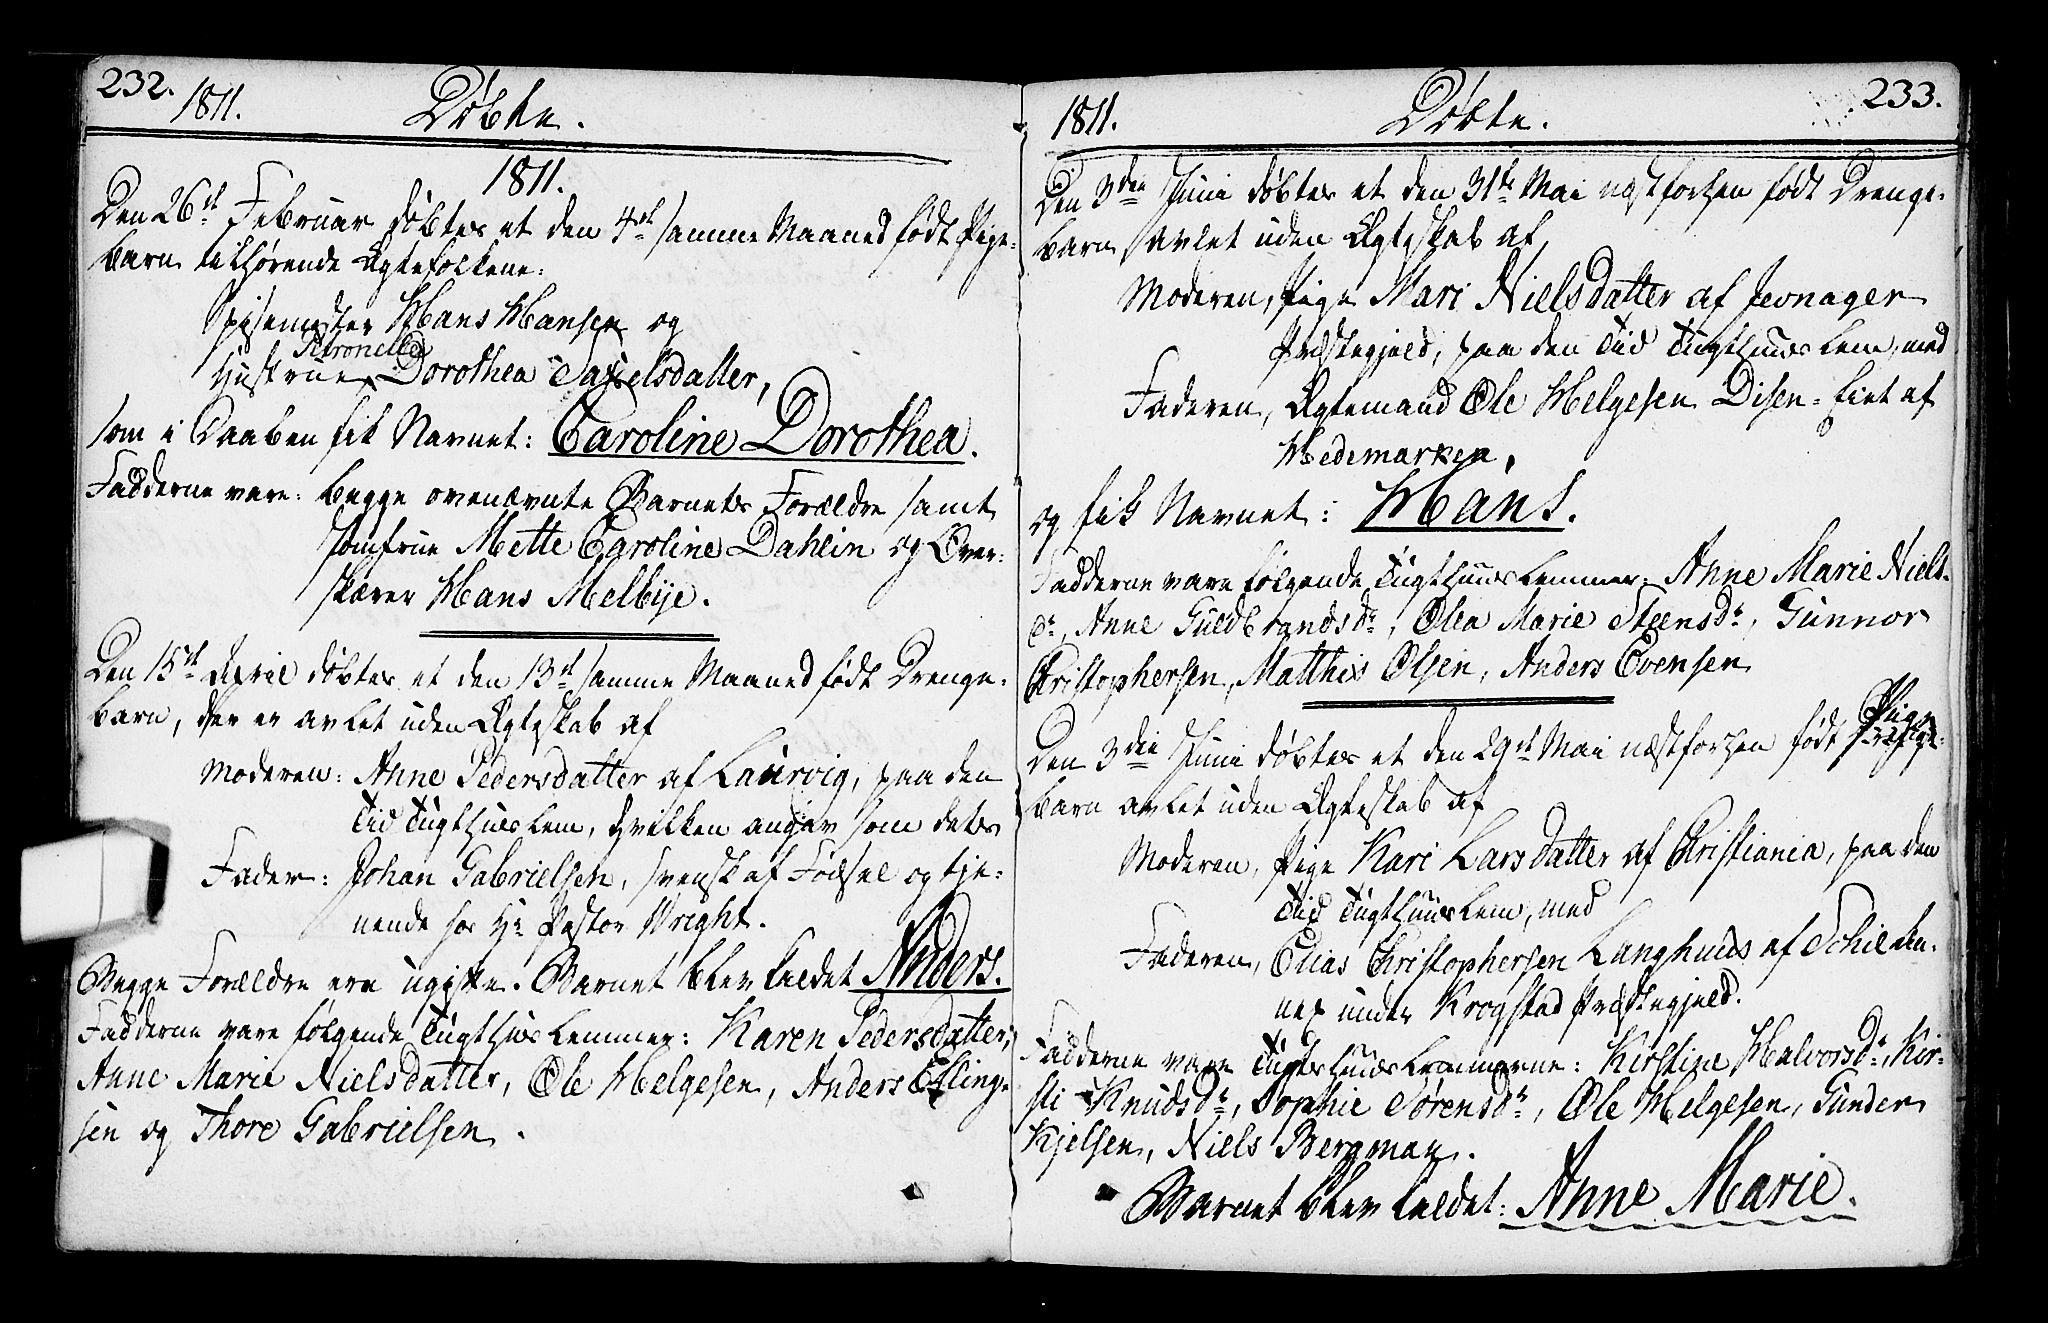 232.
1811. Döbte.
1811.
Den 26de Februar döbtes et den 4de samme Maaned födt Pige-
barn tilhörende Ægtefolkene:
Spisemester Hans Hansen og
Petronelle
Hustrue Dorothea Saxelsdatter,
som i Daaben fik Navnet: Caroline Dorothea.
Fadderne vare: begge ovenævnte Barnets Forældre samt
Jomfrue Mette Caroline Dahlin og Over-
skærer Hans Melbije.
Den 15de April döbtes et den 13de samme Maaned födt Drenge-
barn, der er avlet uden Ægteskab af
Moderen: Anne Pedersdatter af Laurvig, paa den
Tid Tugthuuslem, hvilken angav som dets
Fader: Johan Gabrielsen, svensk af Födsel og tje-
nende hos Hr Pastor Wright.
Begge Forældre ere ugifte. Barnet blev kaldet Anders.
Fadderne vare fölgende Tugthuuslemmer: Karen Pedersdatter,
Anne Marie Nielsdatter, Ole Helgesen, Anders Elling-
sen og Thore Gabrielsen.
233.
1811. Döbte.
Den 3die Juni döbtes et den 31te Mai næstforhen födt Drenge-
barn, avlet uden Ægteskab af
Moderen, Pige Mari Nielsdatter af Jevnager
Præstegjeld, paa den Tid Tugthuuslem, med
Faderen, Ægtemand Ole Helgesen Disen-Eiet af
Hedemarken,
og fik Navnet: Hans.
Fadderne vare fölgende Tugthuuslemmer: Anne Marie Niels-
dr, Anne Guldbrandsdr, Olea Marie Steensdr, Gunnor
Christophersen, Matthis Olsen, Anders Evensen
Den 3die Juni döbtes et den 29de Mai næstforhen födt Pige-
barn avlet uden Ægteskab af
Moderen, Pige Kari Larsdatter af Christiania, paa den
Tid Tugthuuslem, med
Faderen, Elias Christophersen Langhuus af Schieden-
næs under Krogstad Præstegjeld.
Fadderne vare Tugthuuslemmerne: Kirstine Halvorsdr, Kir-
sti Knudsdr, Sophie Sörensdr, Ole Helgesen, Gunder
Kjelsen, Niels Bergman.
Barnet blev kaldet: Anne Marie.